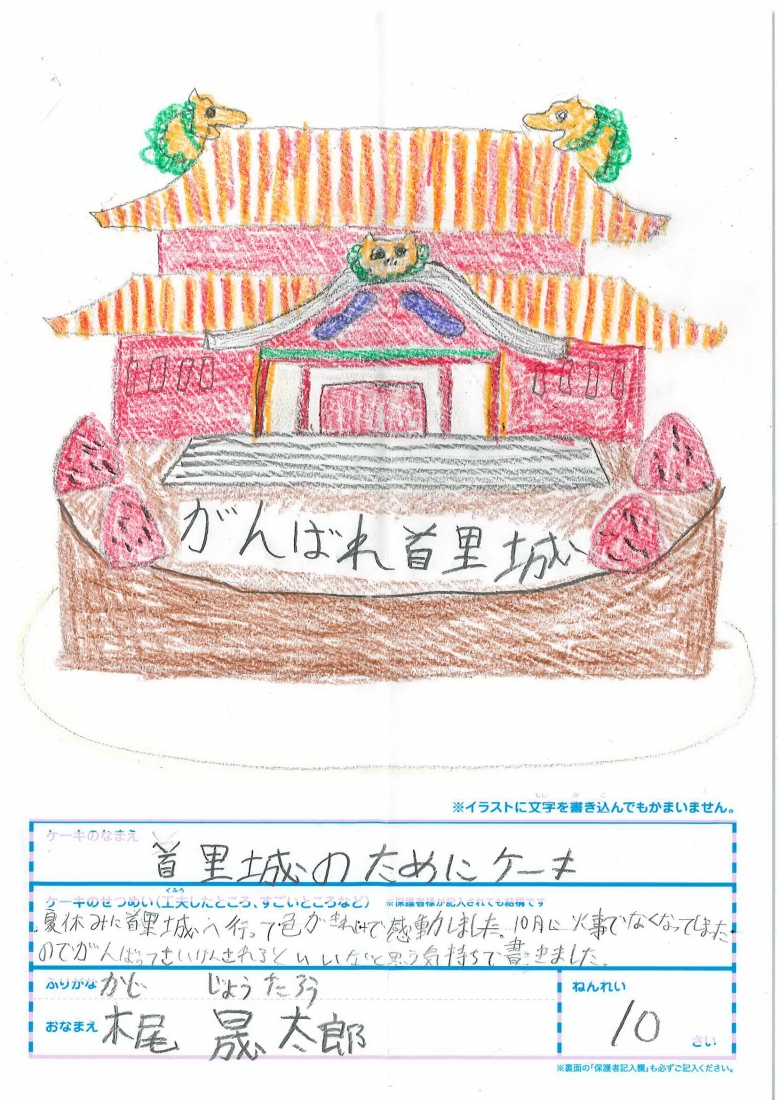 がんばれ首里城
※イラストに文字を書き込んでもかまいません。
ケーキのなまえ
首里城のためにケーキ
ケーキのせつめい(工夫したところ、すごいところなど) ※保護者様が記入されても結構です
夏休みに首里城へ行って色がきれいで感動しました。10月に火事でなくなってしまった
のでがんばってさいけんされるといいなと思う気持ちで書きました。
ふりがな かじ じょうたろう
おなまえ 木尾 晟太郎
ねんれい
10 さい
※裏面の「保護者記入欄」も必ずご記入ください。